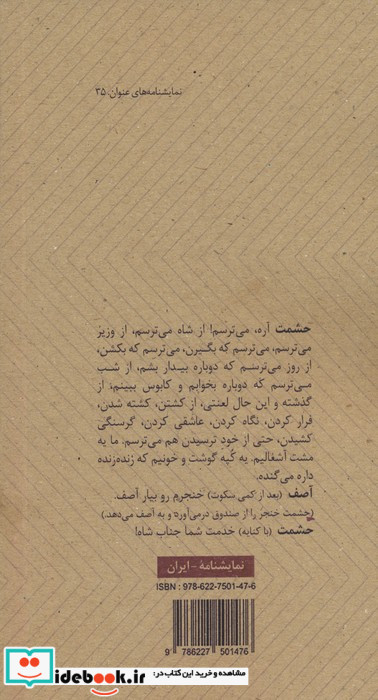 نمایشنامه‌های عنوان ۳۵
حشمت آره، می‌ترسم! از شاه می‌ترسم، از وزیر
می‌ترسم، می‌ترسم که بگیرن، می‌ترسم که بکشن،
از روز می‌ترسم که دوباره بیدار بشم، از شب
می‌ترسم که دوباره بخوابم و کابوس ببینم؛ از
گذشته و این حال لعنتی، از کشتن، کشته شدن،
فرار کردن، نگاه کردن، عاشقی کردن، گرسنگی
کشیدن، حتی از خود ترسیدن هم می‌ترسم. ما یه
مشت آشغالیم. یه کُپه گوشت و خونیم که زنده‌زنده
داره می‌گنده.
آصف (بعد از کمی سکوت) خنجرم رو بیار آصف.
(حشمت خنجر را از صندوق درمی‌آورد و به آصف می‌دهد.)
حشمت (با کنایه) خدمت شما جناب شاه!
نمایشنامه - ایران
ISBN : 978-622-7501-47-6
9 786227 501476
idebook.ir
مشاهده و خرید این کتاب در: